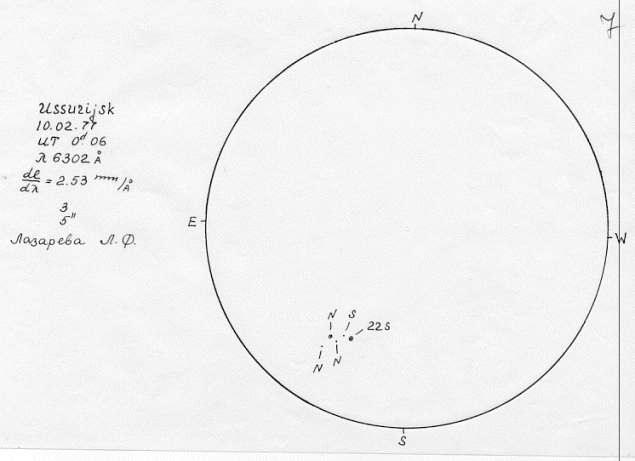 7
N
Ussurijsk
10.02.77
UT 0ᵈ 06
λ 6302 Å
dl/dλ = 2.53 mm/Å
3
5"
Лазарева Л.Ф.
E
W
N S
22S
N N
S